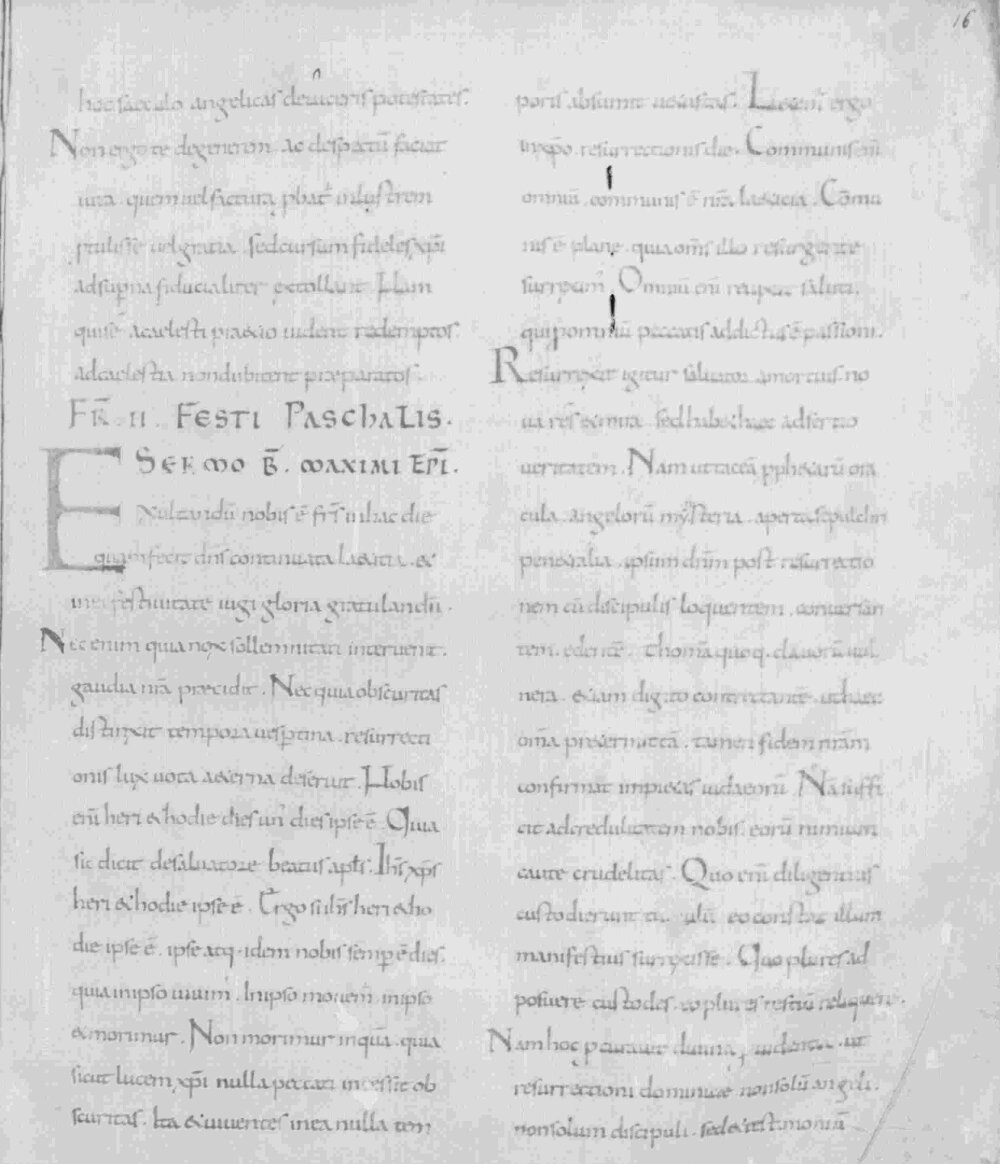 16
hoc saeculo angelicas deuiceris potestates.
Non ergo te degenerem ac despectū faciat
uita quem uel factura phat inlustrem
ptulisse uel gratia. sed cursum fideles xpi
ad supna fiducialiter extollant Nam
qui sē a caelesti uident redemptos.
ad caelestia non dubitent praeparatos.
FR II FESTI PASCHALIS.
SERMO B̄. MAXIMI EPI.
Exultandū nobis ē frs in hac die
quam fecit dns continuata laetitia. &
festiuitate iugi gloria gratulandū.
Nec enim quia nox sollemnitati interuenit.
gaudia nrā praecidit. Nec quia obscuritas
distinxit tempora uesptina. resurrecti
onis lux uota aeterna deseruit. Nobis
enī heri & hodie dies un' dies ipse ē. Quia
sic dicit de saluatore beatus apts. Ihs xps
heri & hodie ipse ē. Ergo si ihs heri & ho
die ipse ē. ipse atq. idem nobis semp ē dies.
quia in ipso uiuim'. In ipso mouem' in ipso
& morimur. Non morimur inquā. quia
sicut lucem xpi nulla peccati incessit ob
scuritas. Ita & uiuentes in ea nulla tem
poris absumit uetustas. Laetem' ergo
in xpo. resurrectionis die. Communis enī
omniū communis ē nrā laetitia. Cōmu
nis ē plane. quia oms illo resurgente
surreximꝰ. Omniū enī reparat saluti,
qui p omniū peccatis addictus ē passioni.
Resurrexit igitur saluator a mortuis no
ua res & mira. sed habet haec adsertio
ueritatem. Nam ut taceā pphetarū ora
cula. angelorū mysteria. aperta sepulchri
penetralia. ipsum dnm post resurrectio
nem cū discipulis loquentem. conuersan
tem. edentē. Thomā quoq. clauorū uul
nera. etiam digito contrectantē. ut haec
omā pretermittā. tamen fidem nrām
confirmat impietas iudaeorū Nā suffi
cit ad credulitatem nobis. eorū nimium
caute crudelitas. Quo enī diligentius
custodierunt eo constat illum
manifestius surrexisse. Quo plures ad
posuere custodes. eo plures testiū reliquere.
Nam hoc ut
resurrectioni dominicae non solū angeli.
non solum discipuli. sed & testimoniā